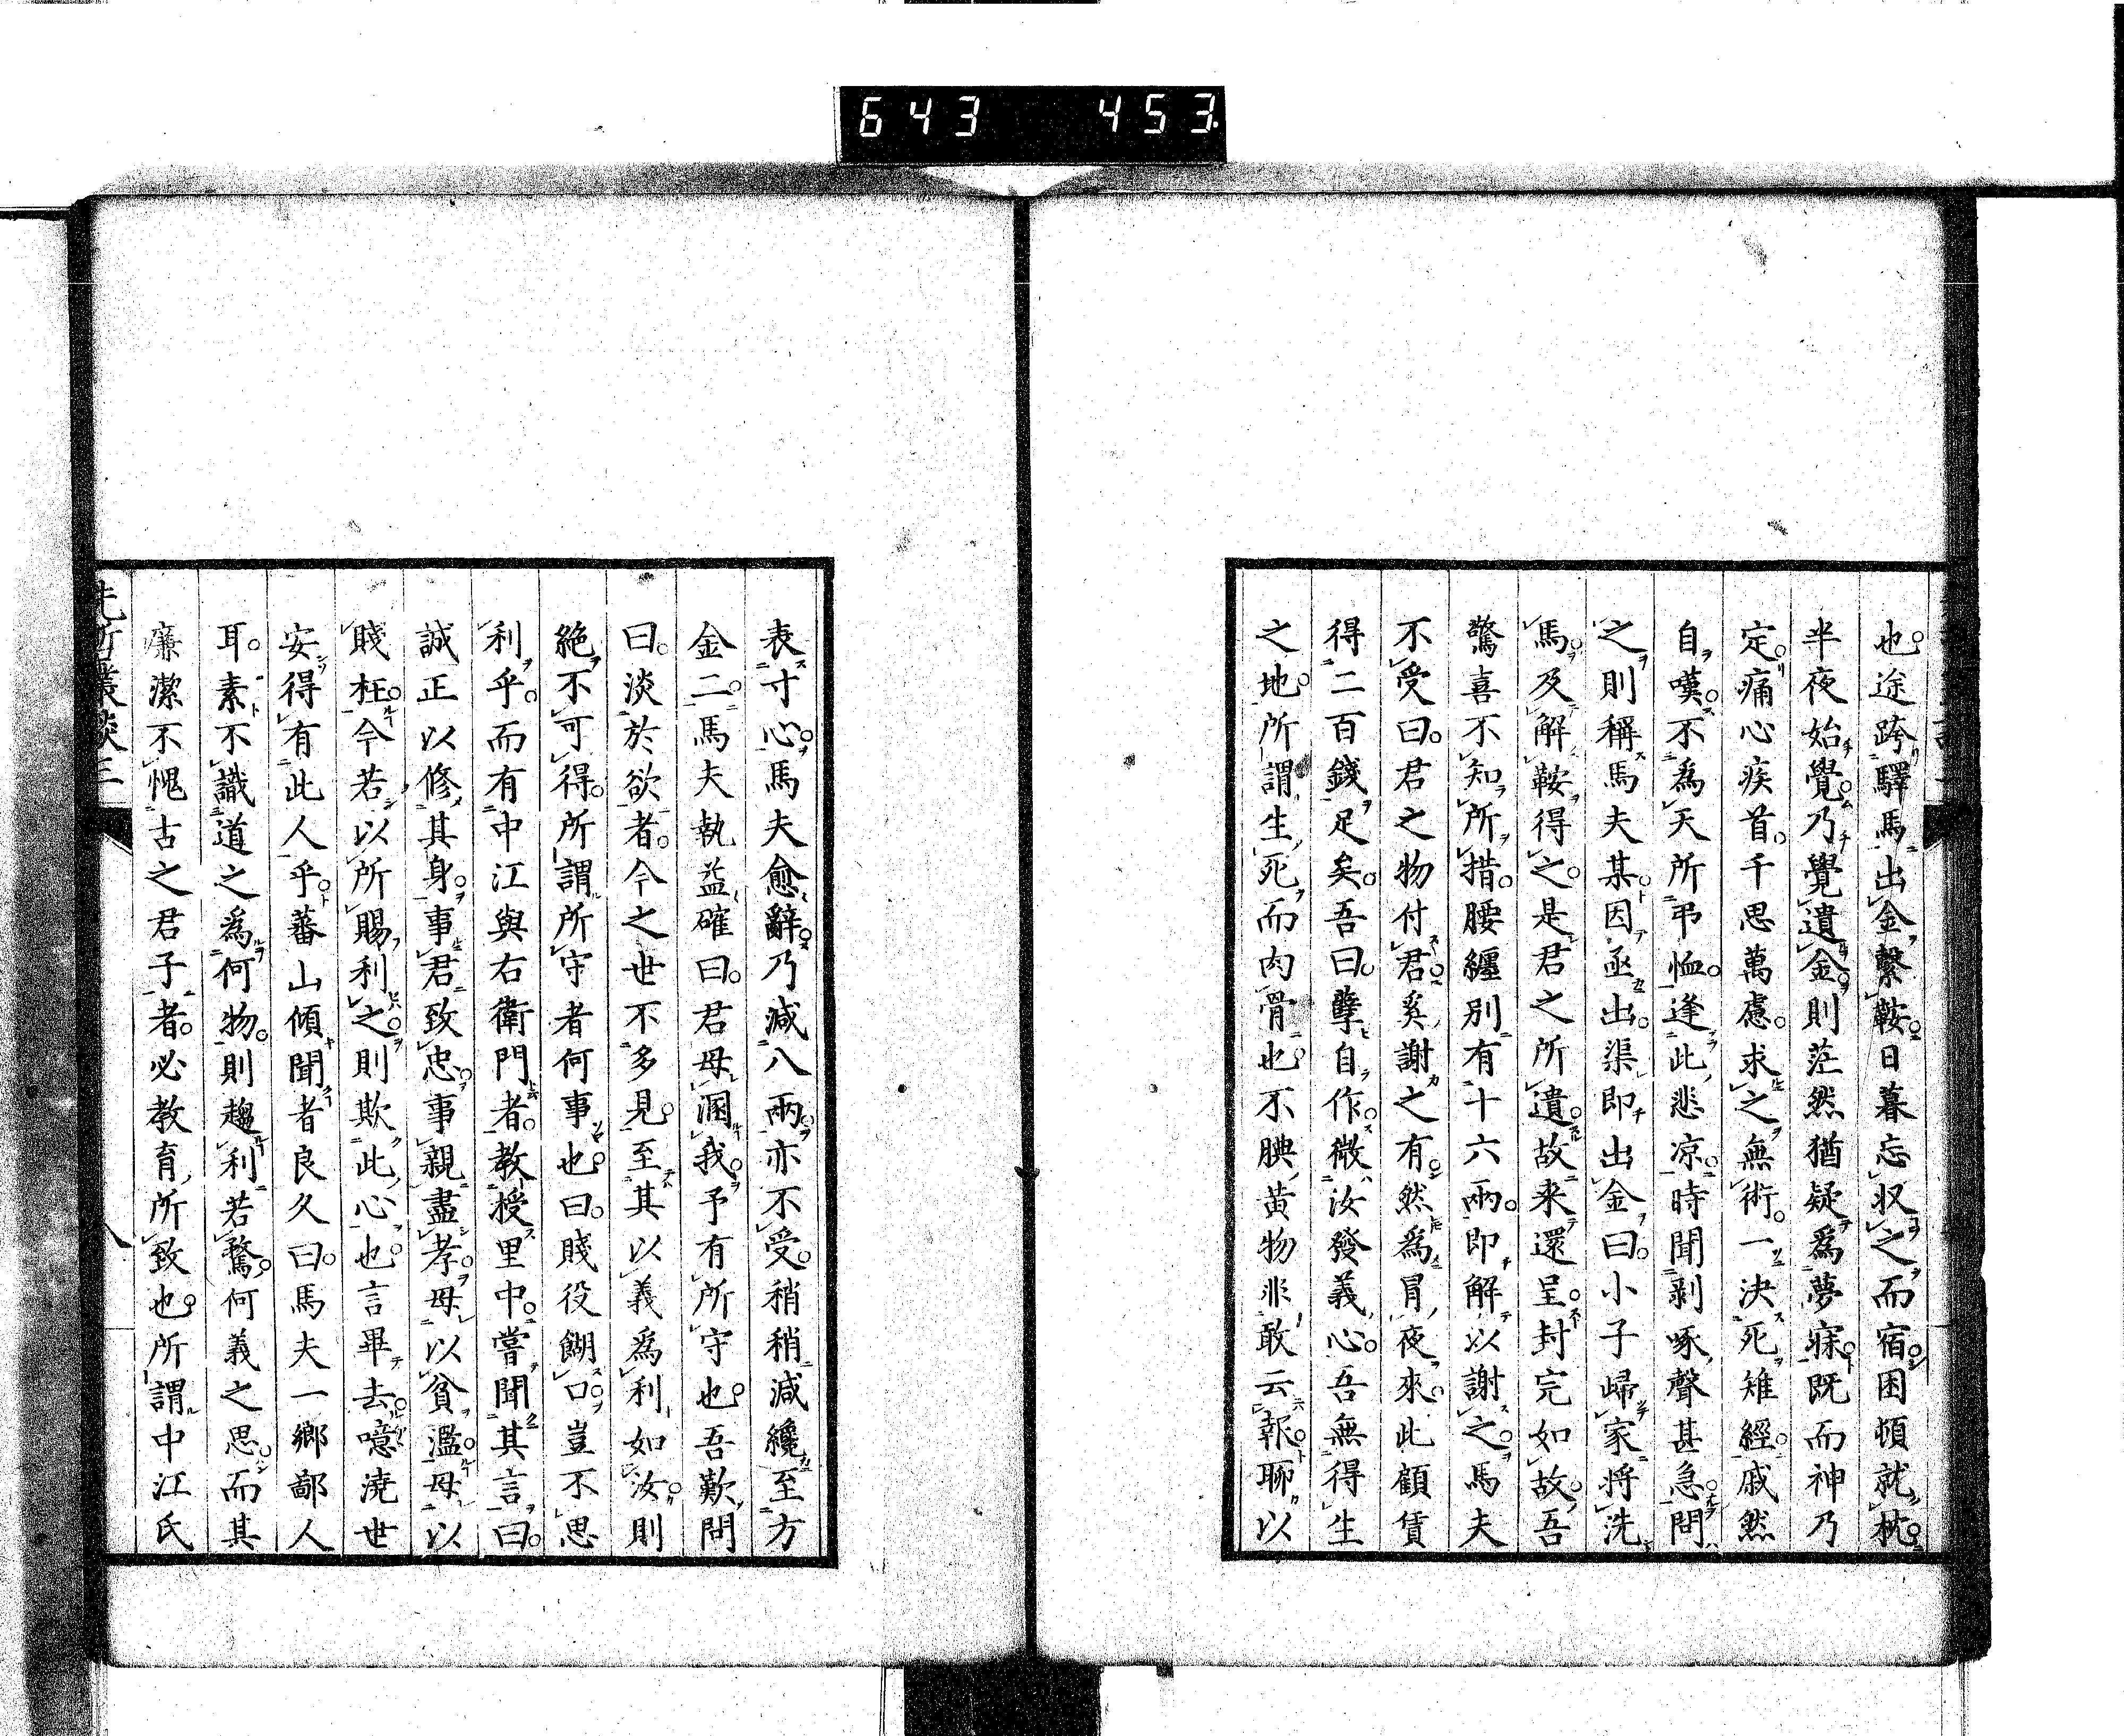 643 453
也途跨驛馬出金繫鞍日暮忘収之而宿困頓就枕
半夜始覺乃覺遺金則茫然猶疑爲夢寐既而神乃
定痛心疾首千思萬慮求之無術一決死雉經戚然
自嘆不爲天所弔恤逢此悲凉時聞剥啄聲甚急問
之則稱馬夫某因亟出渠即出金曰小子歸家將洗
馬及解鞍得之是君之所遺故来還呈封完如故吾
驚喜不知所措腰纏別有十六兩即解以謝之馬夫
不受曰君之物付君奚謝之有然爲冒夜來此顧賃
得二百錢足矣吾曰孽自作微汝發義心吾無得生
之地所謂生死而肉骨也不腆黄物非敢云報聊以
表寸心馬夫愈辭乃減八兩亦不受稍稍減纔至方
金二馬夫執益確曰君毋溷我予有所守也吾歎問
曰淡於欲者今之世不多見至其以義爲利如汝則
絶不可得所謂所守者何事也曰賤役餬口豈不思
利乎而有中江與右衛門者教授里中嘗聞其言曰
誠正以修其身事君致忠事親盡孝毋以貧濫毋以
賤枉今若以所賜利之則欺此心也言畢去噫澆世
安得有此人乎蕃山傾聞者良久曰馬夫一鄉鄙人
耳素不識道之爲何物則趨利若騖何義之思而其
廉潔不愧古之君子者必教育所致也所謂中江氏
先哲叢談三
八